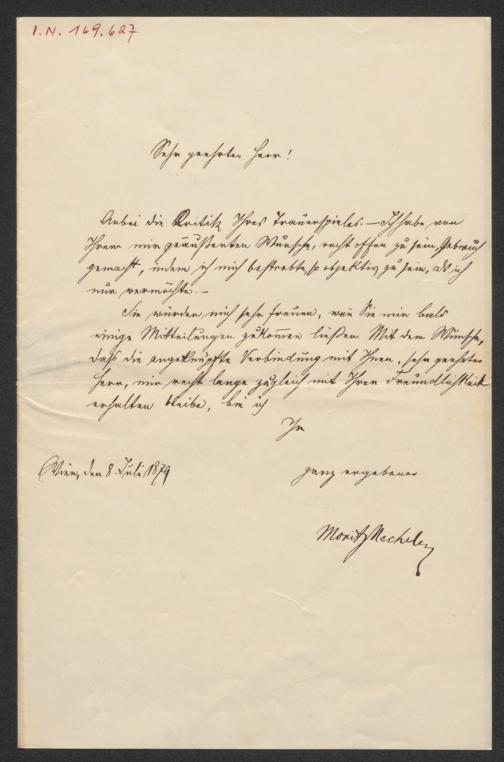 I.N. 169.627
Sehr geehrter Herr!
Anbei die Kritik Ihres Trauerspieles. – Ich habe von
Ihrem mir geäußerten Wunsche, recht offen zu sein, Gebrauch
gemacht, indem ich mich bestrebte, so objektiv zu sein, als ich
nur vermochte. –
Sie würden mich sehr freuen, wenn Sie mir bald
einige Mitteilungen zukommen ließen. Mit dem Wunsche,
daß die angeknüpfte Verbindung mit Ihnen, sehr geehrter
Herr, mir recht lange zugleich mit Ihrer Freundlichkeit
erhalten bleibe, bin ich
Ihr
Wien, den 8. Juli 1879
ganz ergebener
Moritz Necheles